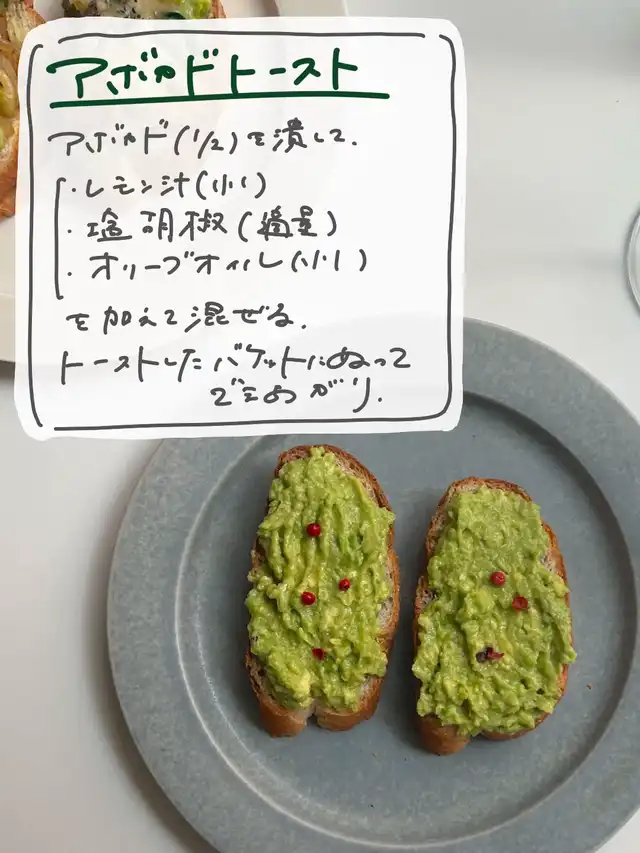 アボカドトースト
アボカド(1/2)を潰して.
・レモン汁(小1)
・塩胡椒(適量)
・オリーブオイル(小1)
を加えて混ぜる.
トーストしたバケットにぬって
できあがり.